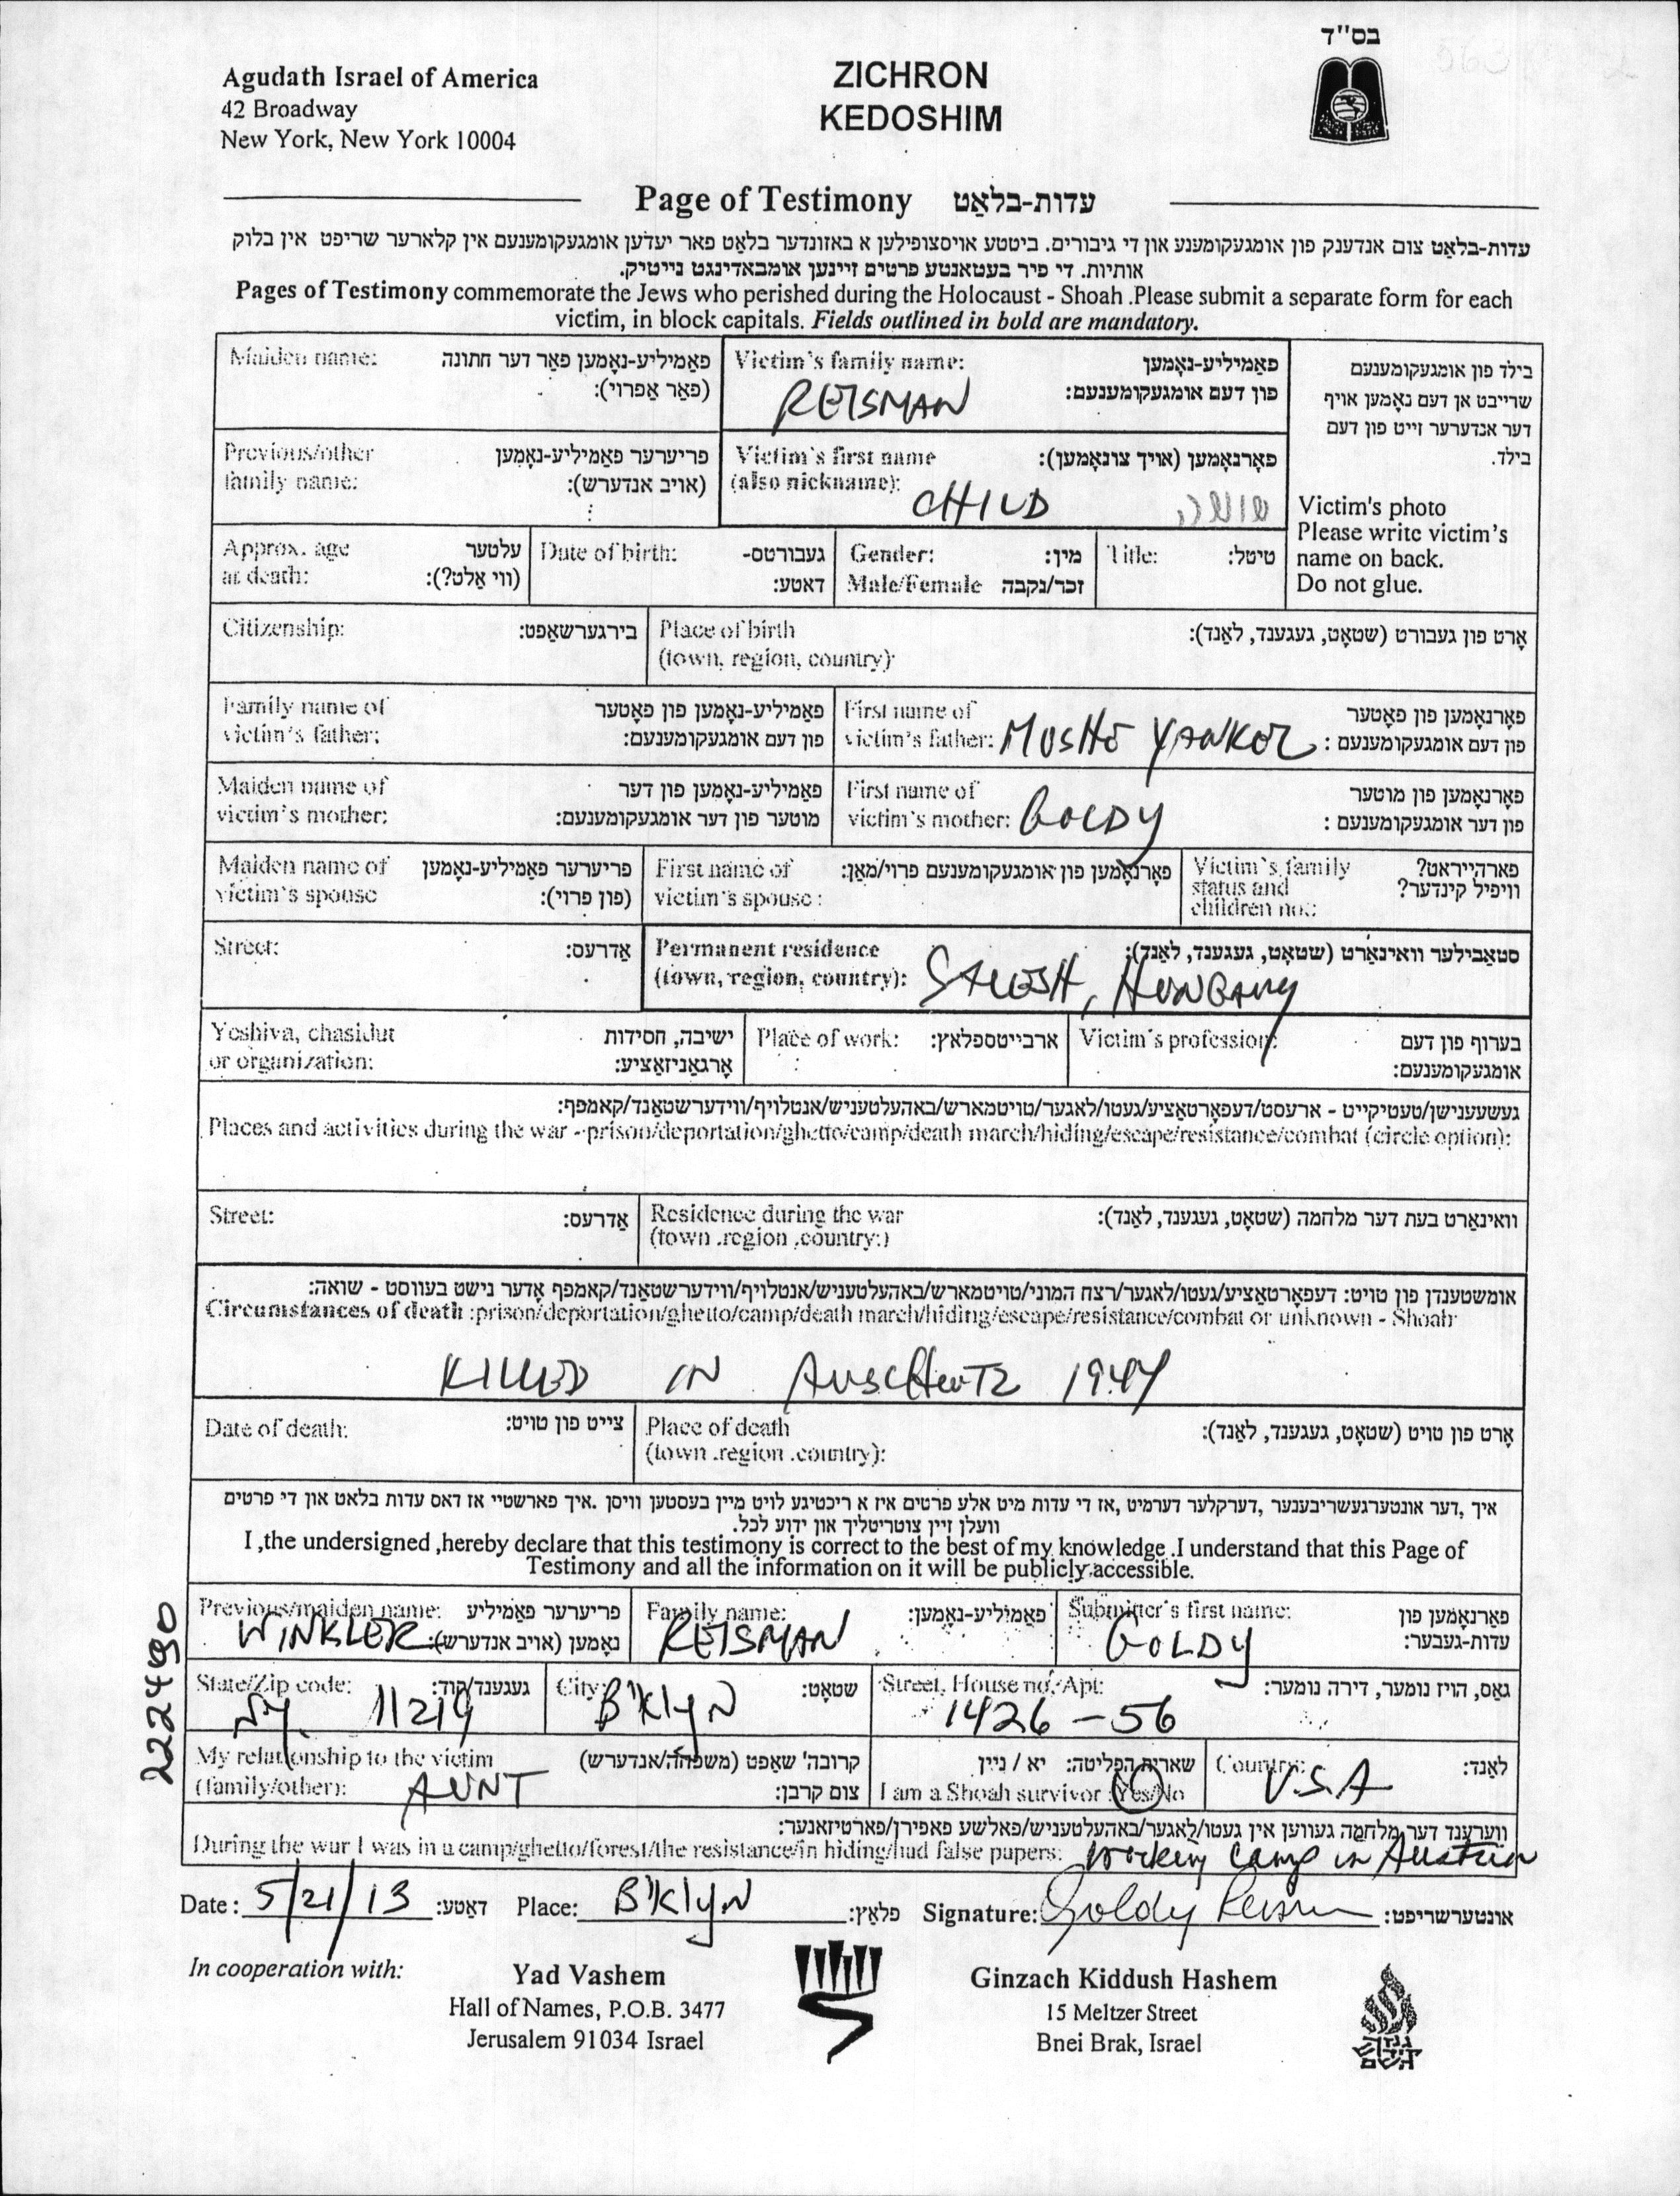 בס"ד
Agudath Israel of America
42 Broadway
New York, New York 10004
ZICHRON
KEDOSHIM
Page of Testimony עדות-בלאַט
עדות-בלאַט צום אנדענק פון אומגעקומענע און די גיבורים. ביטטע אויסצופילען א באזונדער בלאַט פאר יעדען אומגעקומענעם אין קלארער שריפט אין בלוק
אותיות. די פיר בעטאנטע פרטים זיינען אומבאדינגט נייטיק.
Pages of Testimony commemorate the Jews who perished during the Holocaust - Shoah .Please submit a separate form for each
victim, in block capitals. Fields outlined in bold are mandatory.
Maiden name: פאַמיליע-נאָמען פאַר דער חתונה
(פאַר אַפרוי):
Victim's family name: פאַמיליע-נאָמען
פון דעם אומגעקומענעם:
REISMAN
בילד פון אומגעקומענעם
שרייבט אן דעם נאָמען אויף
דער אנדערער זייט פון דעם
בילד.
Victim's photo
Please write victim's
name on back.
Do not glue.
Previous/other פריערער פאַמיליע-נאָמען
family name: (אויב אנדערש):
Victim's first name פאָרנאָמען (אויך צונאָמען):
(also nickname):
CHILD
Approx. age עלטער
at death: (ווי אַלט?):
Date of birth: געבורטס-
דאטע:
Gender: מין:
Male/Female זכר/נקבה
Title: טיטל:
Citizenship: בירגערשאַפט:
Place of birth אָרט פון געבורט (שטאָט, געגענד, לאַנד):
(town, region, country):
Family name of פאַמיליע-נאָמען פון פאָטער
victim's father: פון דעם אומגעקומענעם:
First name of פאָרנאָמען פון פאָטער
victim's father: MOSHE YANKOL פון דעם אומגעקומענעם :
Maiden name of פאַמיליע-נאָמען פון דער
victim's mother: מוטער פון דער אומגעקומענעם:
First name of פאָרנאָמען פון מוטער
victim's mother: GOLDY פון דער אומגעקומענעם :
Maiden name of פריערער פאַמיליע-נאָמען
victim's spouse (פון פרוי):
First name of פאָרנאָמען פון אומגעקומענעם פרוי/מאַן:
victim's spouse :
Victim's family פארהייראט?
status and וויפיל קינדער?
children no.:
Street: אַדרעס:
Permanent residence סטאַבילער וואינאָרט (שטאָט, געגענד, לאַנד):
(town, region, country): SALESH, HUNGARY
Yeshiva, chasidut ישיבה, חסידות
or organization: אָרגאַניזאַציע:
Place of work: ארבייטספלאץ:
Victim's profession: בערוף פון דעם
אומגעקומענעם:
געשעענישן/טעטיקייט - ארעסט/דעפּאָרטאַציע/געטו/לאגער/טויטמארש/באהעלטעניש/אנטלויף/ווידערשטאַנד/קאמפף:
Places and activities during the war - prison/deportation/ghetto/camp/death march/hiding/escape/resistance/combat (circle option):
Street: אַדרעס:
Residence during the war וואינאָרט בעת דער מלחמה (שטאָט, געגענד, לאַנד):
(town .region .country:)
אומשטענדן פון טויט: דעפּאָרטאַציע/געטו/לאגער/רצח המוני/טויטמארש/באהעלטעניש/אנטלויף/ווידערשטאַנד/קאמפף אָדער נישט בעווסט - שואה:
Circumstances of death :prison/deportation/ghetto/camp/death march/hiding/escape/resistance/combat or unknown - Shoah
KILLED IN AUSCHWITZ 1944
Date of death: צייט פון טויט:
Place of death אָרט פון טויט (שטאָט, געגענד, לאַנד):
(town .region .country):
איך ,דער אונטערגעשריבענער ,דערקלער דערמיט ,אז די עדות מיט אלע פרטים איז א ריכטיגע לויט מיין בעסטען וויסן .איך פארשטיי אז דאס עדות בלאט און די פרטים
וועלן זיין צוטריטליך און ידוע לכל.
I ,the undersigned ,hereby declare that this testimony is correct to the best of my knowledge .I understand that this Page of
Testimony and all the information on it will be publicly accessible.
Previous/maiden name: פריערער פאַמיליע
WINKLER נאָמען (אויב אנדערש):
Family name: פאַמיליע-נאָמען:
REISMAN
Submitter's first name: פאָרנאָמען פון
GOLDY עדות-געבער:
State/Zip code: געגענד/קוד:
NY. 11219
City: שטאָט:
B'klyN
Street, House no, Apt: גאַס, הויז נומער, דירה נומער:
1426 - 56
My relationship to the victim קרובה' שאַפט (משפּחה/אנדערש)
(family/other): AUNT צום קרבן:
שארית הפליטה: יא / ניין
I am a Shoah survivor :Yes/No
Country: לאַנד:
U.S.A
ווערענד דער מלחמה געווען אין געטו/לאַגער/באַהעלטעניש/פאלשע פאפירן/פארטיזאנער:
During the war I was in a camp/ghetto/forest/the resistance/in hiding/had false papers: Working Camp in Austria
Date : 5/21/13 דאַטע: Place: B'klyN פלאַץ: Signature: Goldy Reisman אונטערשריפט:
222490
In cooperation with:
Yad Vashem
Hall of Names, P.O.B. 3477
Jerusalem 91034 Israel
Ginzach Kiddush Hashem
15 Meltzer Street
Bnei Brak, Israel
גנזך
קידוש
השם